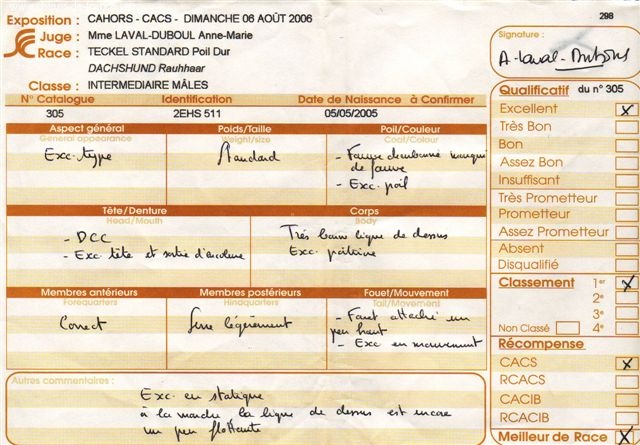 298
Exposition : CAHORS - CACS - DIMANCHE 06 AOÛT 2006
Juge : Mme LAVAL-DUBOUL Anne-Marie
Race : TECKEL STANDARD Poil Dur
DACHSHUND Rauhhaar
Classe : INTERMEDIAIRE MÂLES
Signature :
A-Laval-Duboul
N° Catalogue Identification Date de Naissance à Confirmer
305 2EHS 511 05/05/2005
Aspect général Poids/Taille Poil/Couleur
General appearance Weight/size Coat/Colour
Exc. type
Standard
- Fauve charbonné manque
de fauve
- Exc. poil
Tête/Denture Corps
Head/Mouth Body
- DCC
- Exc tête et sortie d'encolure
Très bonne ligne de dessus
Exc. poitrine
Membres antérieurs Membres postérieurs Fouet/Mouvement
Forequarters Hindquarters Tail/Movement
Correct
Serre légèrement
- Fouet attaché un
peu haut
- Exc en mouvement
Autres commentaires :
Exc. en statique
à la marche la ligne de dessus est encore
un peu flottante
Qualificatif du n° 305
Excellent X
Très Bon
Bon
Assez Bon
Insuffisant
Très Prometteur
Prometteur
Assez Prometteur
Absent
Disqualifié
Classement 1er X
2e
3e
Non Classé 4e
Récompense
CACS X
RCACS
CACIB
RCACIB
Meilleur de Race X